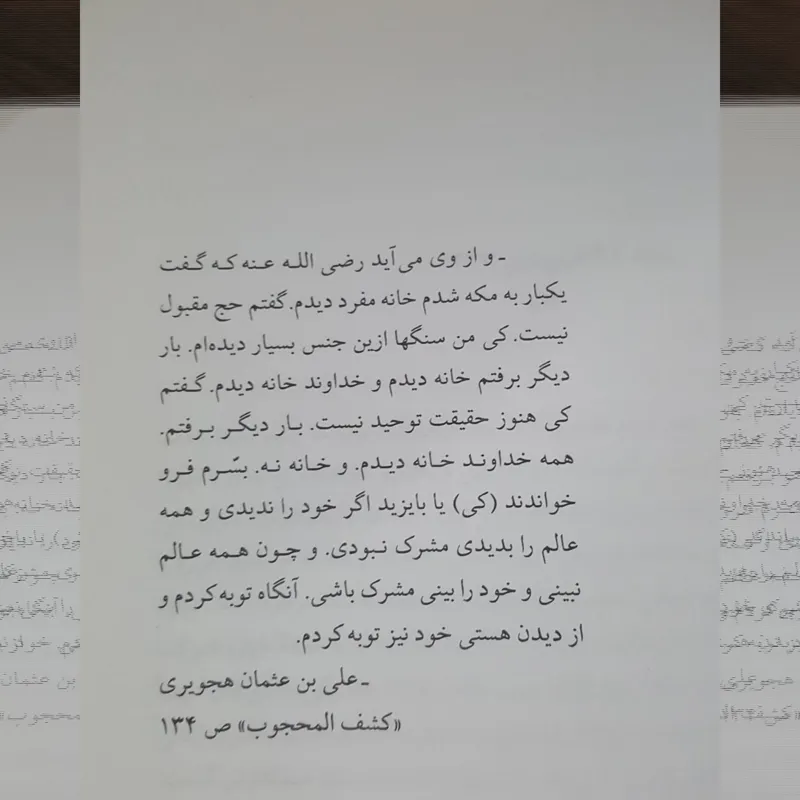 ـ و از وی می‌آید رضی اللـه عـنه کـه گـفت
یکبار به مکه شدم خانه مفرد دیدم. گفتم حج مقبول
نیست. کی من سنگها ازین جنس بسیار دیده‌ام. بار
دیگر برفتم خانه دیدم و خداوند خانه دیدم. گـفتم
کی هنوز حقیقت توحید نیست. بـار دیگـر بـرفتم.
همه خداونـد خـانه دیـدم. و خـانه نـه. بسّـرم فـرو
خواندند (کی) یا بایزید اگر خود را ندیدی و همه
عالم را بدیدی مشرک نـبودی. و چـون هـمه عـالم
نبینی و خود را بینی مشرک باشی. آنگاه توبه کردم و
از دیدن هستی خود نیز توبه کردم.
ـ علی بن عثمان هجویری
«کشف المحجوب» ص ۱۳۴